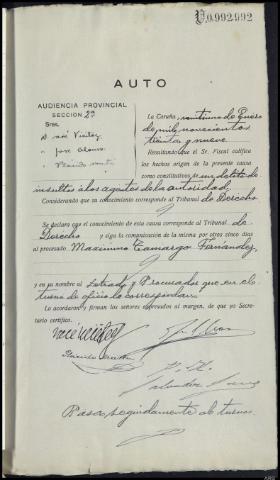 V.0.992.992
AUTO
AUDIENCIA PROVINCIAL
SECCION 2ª
Sres.
D. José
" José Alonso
"
La Coruña, veintiuno de Enero
de mil novecientos
treinta y nueve
Resultando que el Sr. Fiscal califica
los hechos origen de la presente causa
como constitutivos de un delito de
insulto a los agentes de la autoridad.
Considerando que su conocimiento corresponde al Tribunal de Derecho
Se declara que el conocimiento de esta causa corresponde al Tribunal de
Derecho y siga la comunicación de la misma por otros cinco días
al procesado Maximino Camargo Fernández
y en su nombre al Letrado y Procurador que en el
turno de oficio le corresponda.
Lo acordaron y firman los señores expresados al margen, de que yo Secre-
tario certifico.
Pasa seguidamente al turno.